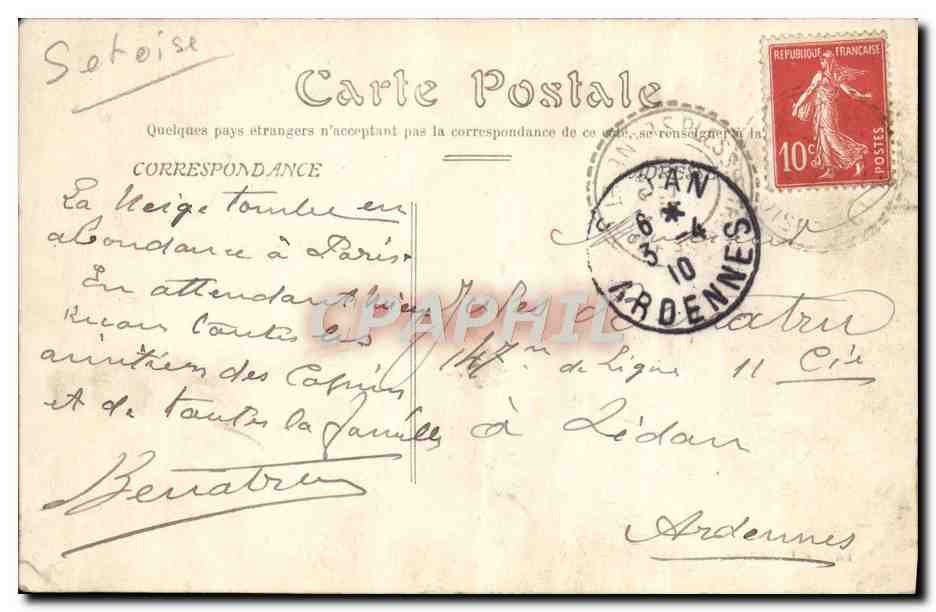 Setoise
Carte Postale
Quelques pays étrangers n'acceptent pas la correspondance de ce côté, se renseigner à la
CORRESPONDANCE
REPUBLIQUE FRANÇAISE
10c
POSTES
La Neige tombe en
abondance à Paris.
En attendant
toutes les
amitiés des Copains
et de toutes la famille
Benatru
Monsieur
Jules Benatru
147 de Ligne 11 Cie
à Sédan
Ardennes
DAN
6 * 4
3 10
ARDENNES
CPAPHIL